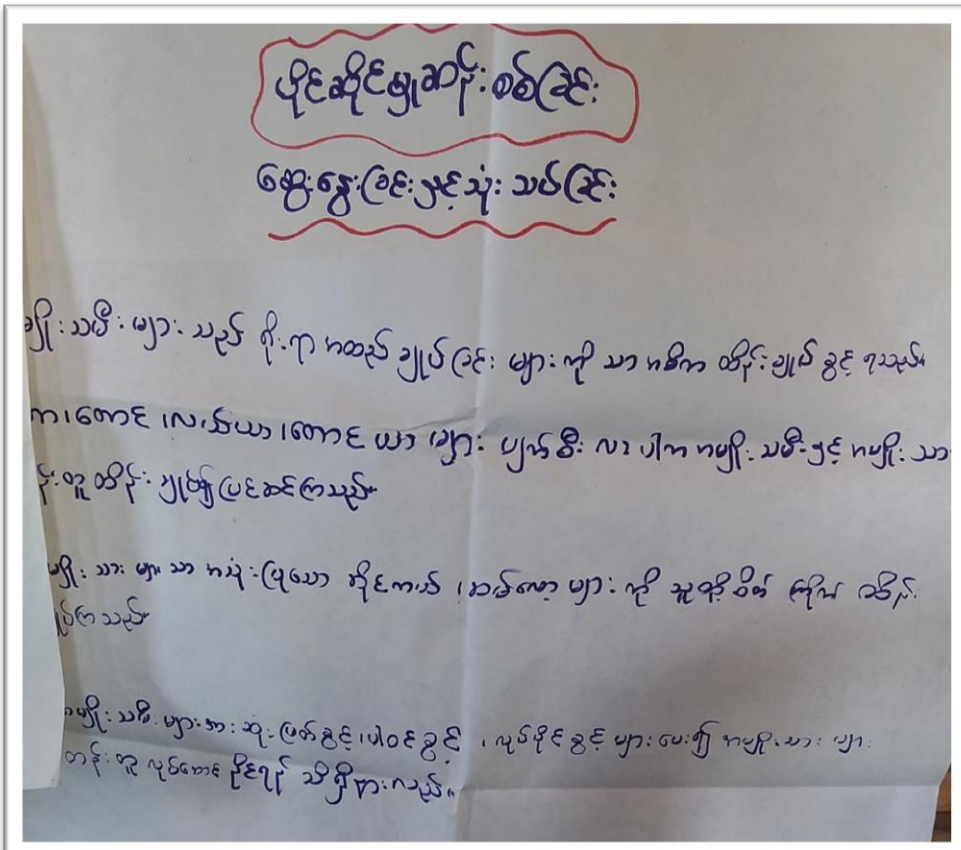 ပိုင်ဆိုင်မှုဆန်းစစ်ခြင်း
ဆွေးနွေးခြင်းနှင့်သုံးသပ်ခြင်း
မျိုးသမီးများသည် ရိုးရာ အထည်ချုပ်ခြင်း များကို သာ အဓိက ထိန်းချုပ်ခွင့် ရသည်။
လယ်ယာ၊တောင်ယာ များ ပျက်စီး လာပါက အမျိုးသမီးနှင့် အမျိုးသား
န်းတူ ထိန်းချုပ်၍ပြင်ဆင်ကြသည်။
မျိုးသား များသာ အသုံးပြုသော ဆိုင်ကယ် များကို သူတို့ ထိန်း
ုပ်ကြသည်။
အမျိုးသမီးများအား ဆုံးဖြတ်ခွင့်၊ပါဝင်ခွင့် ၊ လုပ်ပိုင်ခွင့် များပေး၍ အမျိုးသား များ
တန်းတူ လုပ်ဆောင်နိုင်ရန် သိရှိနားလည်။